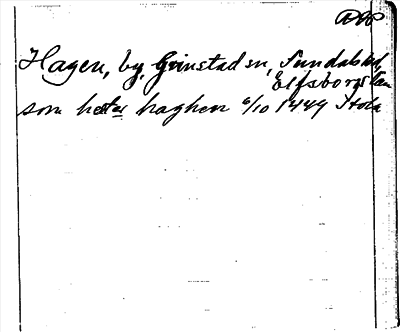 Hagen, by, Grinstad sn, Sundals hd,
Elfsborgs län
som heter haghen 6/10 1449 Stola